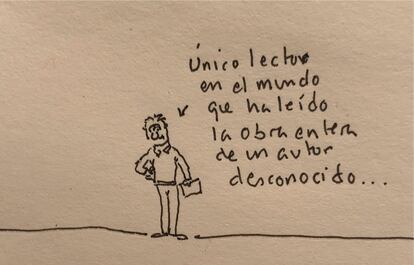 Único lector
en el mundo
que ha leído
la obra entera
de un autor
desconocido...